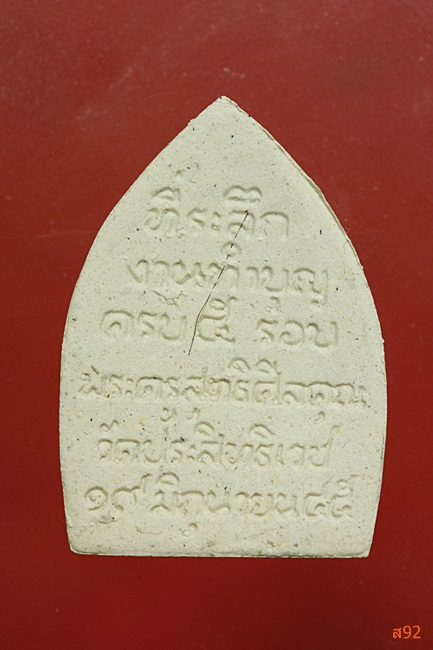 ที่ระลึก
งานทำบุญ
ครบ ๕ รอบ
พระครูสุทธิศีลคุณ
วัดประสิทธิเวช
๑๙ มิถุนายน ๔๕
ส92